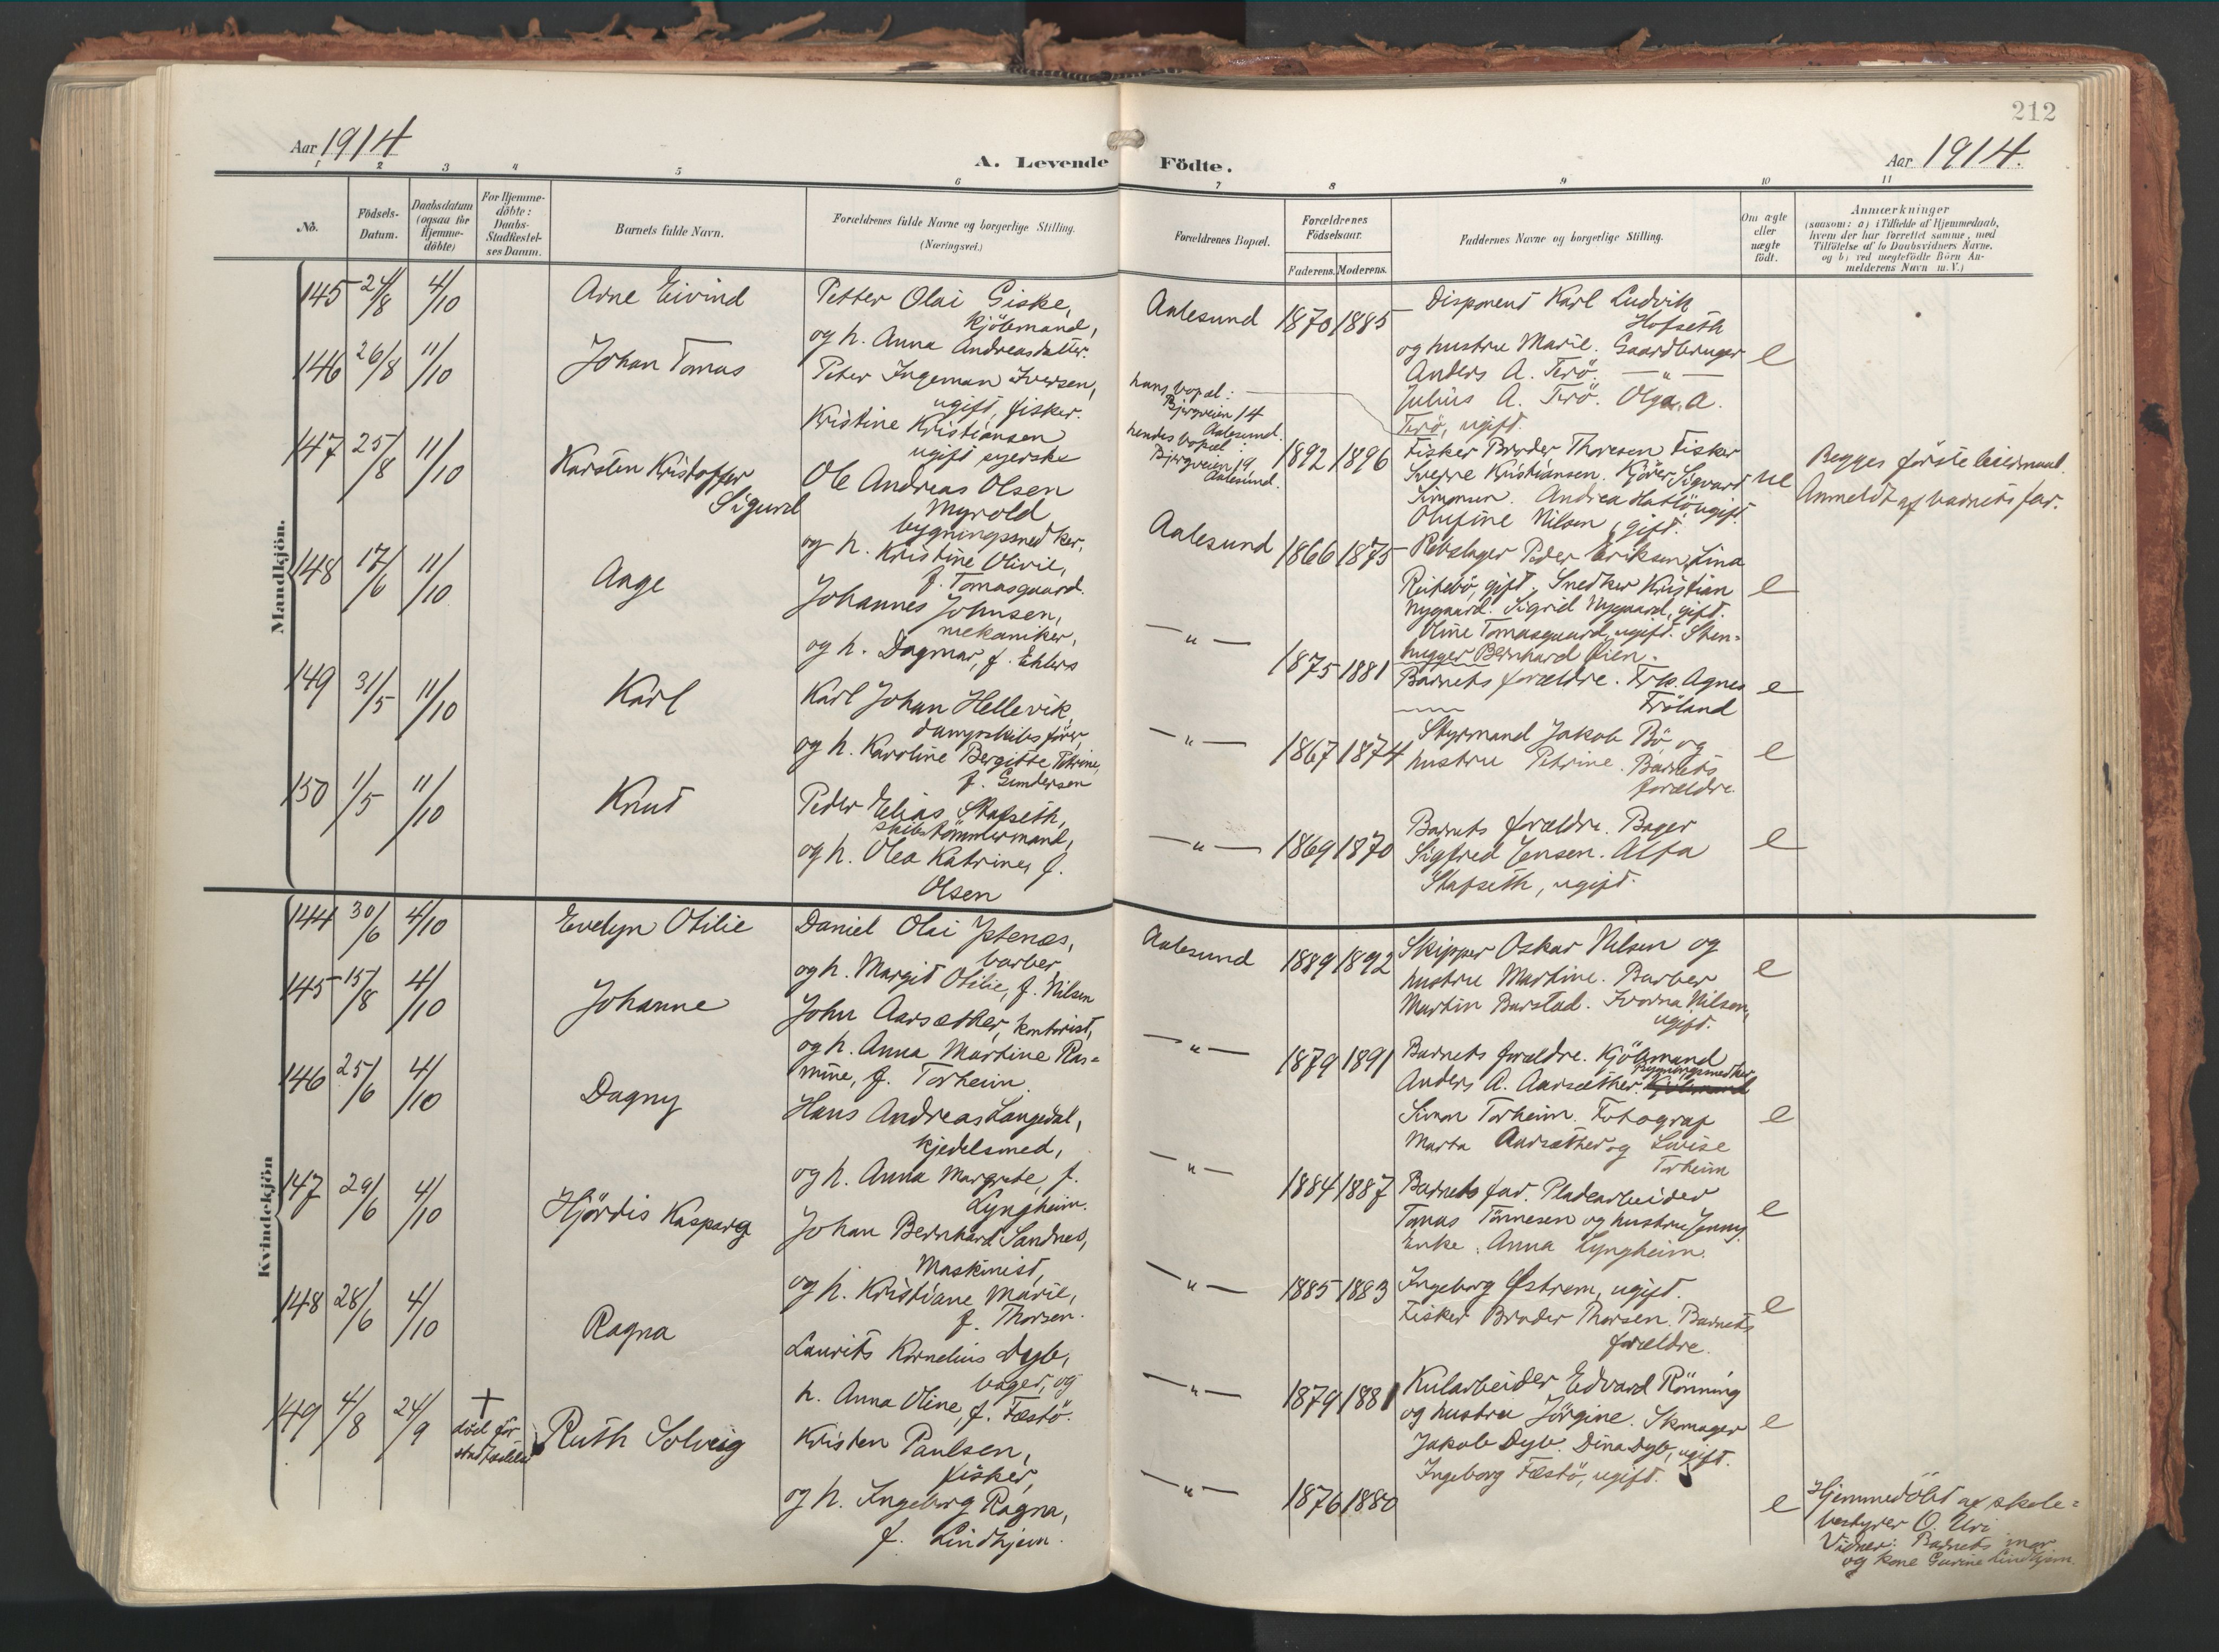 212
Aar 1914
A. Levende Födte.
Aar 1914.
1 2 3 4 5 6 7 8 9 10 11
No.
Födsels-Datum.
Daabsdatum (ogsaa for Hjemme-döbte)
For Hjemme-döbte: Daabs-Stadfæstel-ses Datum.
Barnets fulde Navn.
Forældrenes fulde Navne og borgerlige Stilling. (Næringsvei.)
Forældrenes Bopæl.
Forældrenes Födselsaar.
Faderens. Moderens.
Faddernes Navne og borgerlige Stilling.
Om ægte eller uægte födt.
Anmærkninger
(saasom: a) i Tilfælde af Hjemmedaab,
hvem der har forrettet samme, med
Tilföielse af to Daabsvidners Navne,
og b) ved uægtefödte Börn An-
melderens Navn m. V.)
Mandkjön.
145 24/8 4/10
Arne Eivind
Petter Olai Giske,
kjöbmand,
og h. Anna Andreasdatter.
Aalesund
1870 1885
Disponent Karl Ludvik
Hofseth
og hustru Marie. Gaardbruger
Anders A. Terö. — " —
Julius A. Terö. Olga A.
Terö, ugift.
e
146 26/8 11/10
Johan Tomas
Peter Ingeman Iversen,
ugift, fisker.
Kristine Kristiansen
ugift syerske
hans bopæl:
Bjergveien 14
Aalesund.
hendes bopæl:
Bjergveien 19,
Aalesund.
1892 1896
Fisker Broder Thoresen Fisker
Sverre Kristiansen. Kjörer Sigvard
Simonsen. Andrea Hatlö ugift.
Olufine Nilsen, gift.
ue
Begges förste leiermaal.
Anmeldt af barnets far.
147 25/8 11/10
Karsten Kristoffer
Sigurd
Ole Andreas Olsen
Myrold
bygningssnedker,
og h. Kristine Olivie,
f. Tomasgaard.
Aalesund
1866 1875
Rebslager Peder Eriksen, Lina
Reitebö, gift. Snedker Kristian
Nygaard. Sigrid Nygaard, gift.
Oline Tomasgaard, ugift. Sten-
hugger Bernhard Öien.
e
148 17/6 11/10
Aage
Johannes Johnsen,
mekaniker,
og h. Dagmar, f. Ehlers
— " —
1875 1881
Barnets forældre. Frk. Agnes
Fröland
e
149 31/5 11/10
Karl
Karl Johan Hellevik,
dampskibsförer,
og h. Karoline Bergitte Petrine,
f. Gundersen
— " —
1867 1874
Styrmand Jakob Bö og
hustru Petrine. Barnets
forældre.
e
150 1/5 11/10
Knut
Peder Elias Stafseth,
skibstömmermand,
og h. Olea Katrine, f.
Olsen
— " —
1869 1870
Barnets forældre. Bager
Sigfred Jensen. Alfa
Stafseth, ugift.
e
Kvindekjön
144 30/6 4/10
Evelyn Otilie
Daniel Olai Ystenæs,
barber,
og h. Margit Otilie, f. Nilsen
Aalesund
1889 1892
Skipper Oskar Nilsen og
hustru Martine. Barber
Martin Barstad. Nilsen,
ugift.
e
145 15/8 4/10
Johanne
John Aarsæther, kontorist,
og h. Anna Martine Ras-
mine, f. Torheim.
— " —
1879 1891
Barnets forældre. Kjöbmand
Anders A. Aarsæther. Bygningssnedker
Simon Torheim. Fotograf
Marta Aarsæther og Lovise
Torheim
e
146 25/6 4/10
Dagny
Hans Andreas Langedal,
kjedelsmed,
og h. Anna Margrete, f.
Lyngheim.
— " —
1884 1887
Barnets far. Pladearbeider
Tomas Tönnesen og hustru Jenny.
Enke Anna Lyngheim.
e
147 29/6 4/10
Hjördis Kasparg
Johan Bernhard Sandnes,
Maskinist,
og h. Kristiane Marie,
f. Thorsen.
— " —
1885 1883
Ingeborg Østrem, ugift.
Fisker Broder Thorsen. Barnets
forældre.
e
148 28/6 4/10
Ragna
Laurits Kornelius Dyb,
bager, og
h. Anna Oline, f. Festö.
— " —
1879 1881
Kularbeider Edvard Rönning
og hustru Jörgine. Skomager
Jakob Dyb. Dina Dyb, ugift.
Ingeborg Festö, ugift.
e
149 4/8 24/9
+
död för
stadfæstelse
Ruth Solveig
Kristen Paulsen,
fisker,
og h. Ingeborg Ragna,
f. Lindhjem.
— " —
1876 1880
e
Hjemmedöbt af skole-
bestyrer O. Uri
Vidner: Barnets mor
og kone Lindhjem.